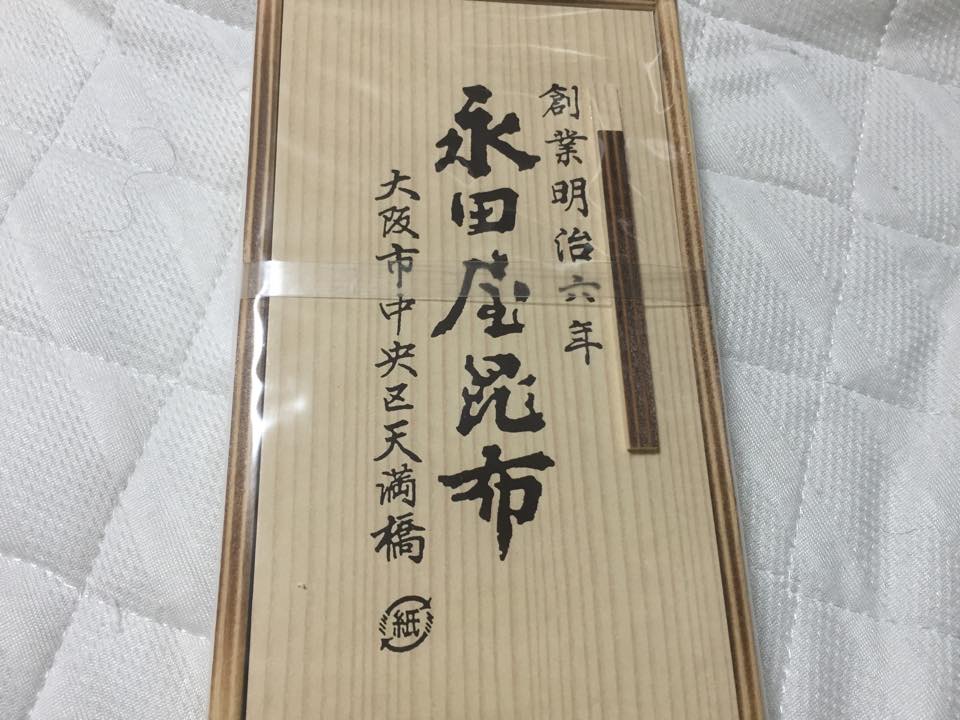 創業明治六年
永田屋昆布
大阪市中央区天満橋
紙